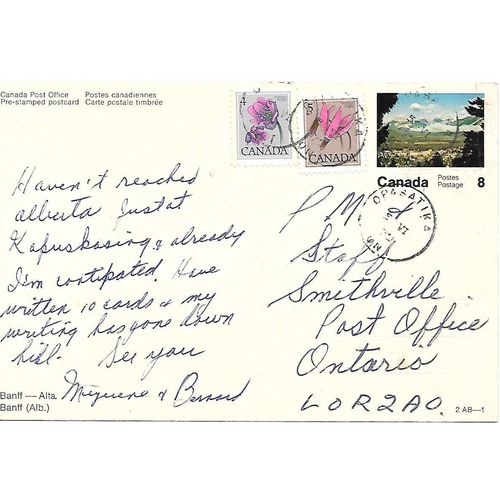 Canada Post Office
Pre-stamped postcard
Postes canadiennes
Carte postale timbrée
4
CANADA
5
CANADA
Canada
Postes
Postage
8
OPASATIKA
VI
Haven't reached
alberta just at
Kapuskasing & already
I'm contipated. Have
written 10 cards & my
writing has gone down
hill. See you
& Bernard
P M &
Staff
Smithville
Post Office
Ontario
LOR2AO.
Banff — Alta.
Banff (Alb.)
2 AB—1